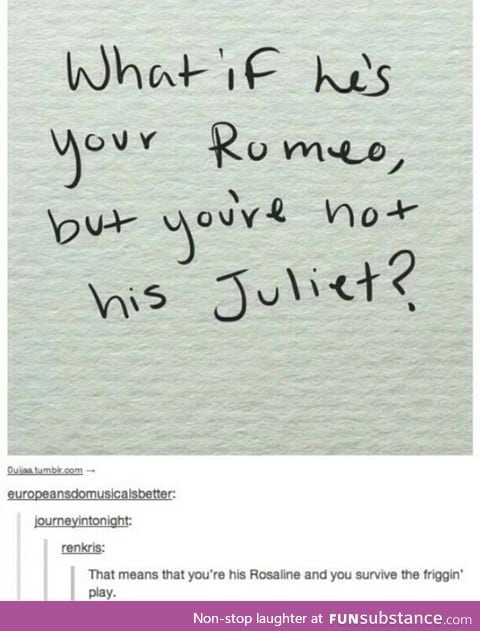 What if he's
your Romeo,
but you're not
his Juliet?
0uijaa.tumblr.com →
europeansdomusicalsbetter:
journeyintonight:
renkris:
That means that you're his Rosaline and you survive the friggin'
play.
Non-stop laughter at FUNsubstance.com